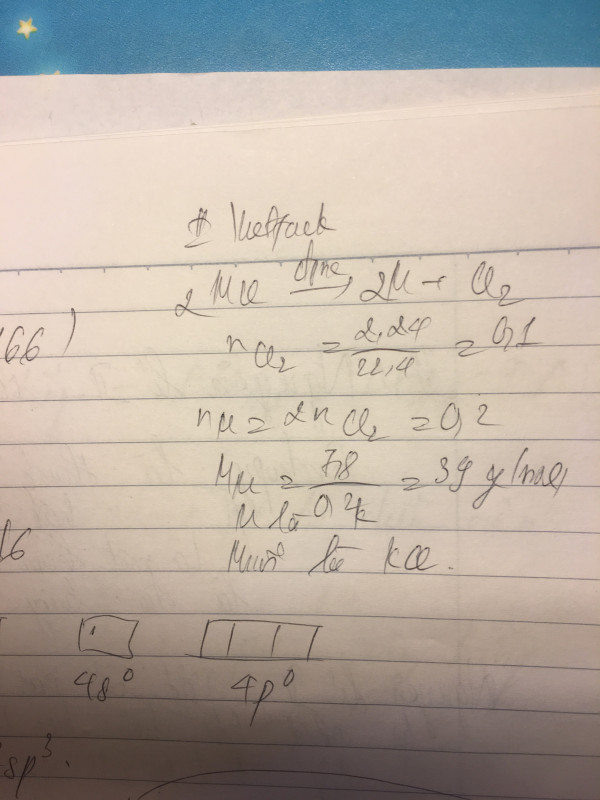 2MCl đpnc → 2M + Cl2
66)
nCl2 = 2,24 / 22,4 = 0,1
nM = 2nCl2 = 0,2
MM = 7,8 / 0,2 = 39 g/mol
M là K
16
Muối là KCl.
4s0 4p0
sp3.